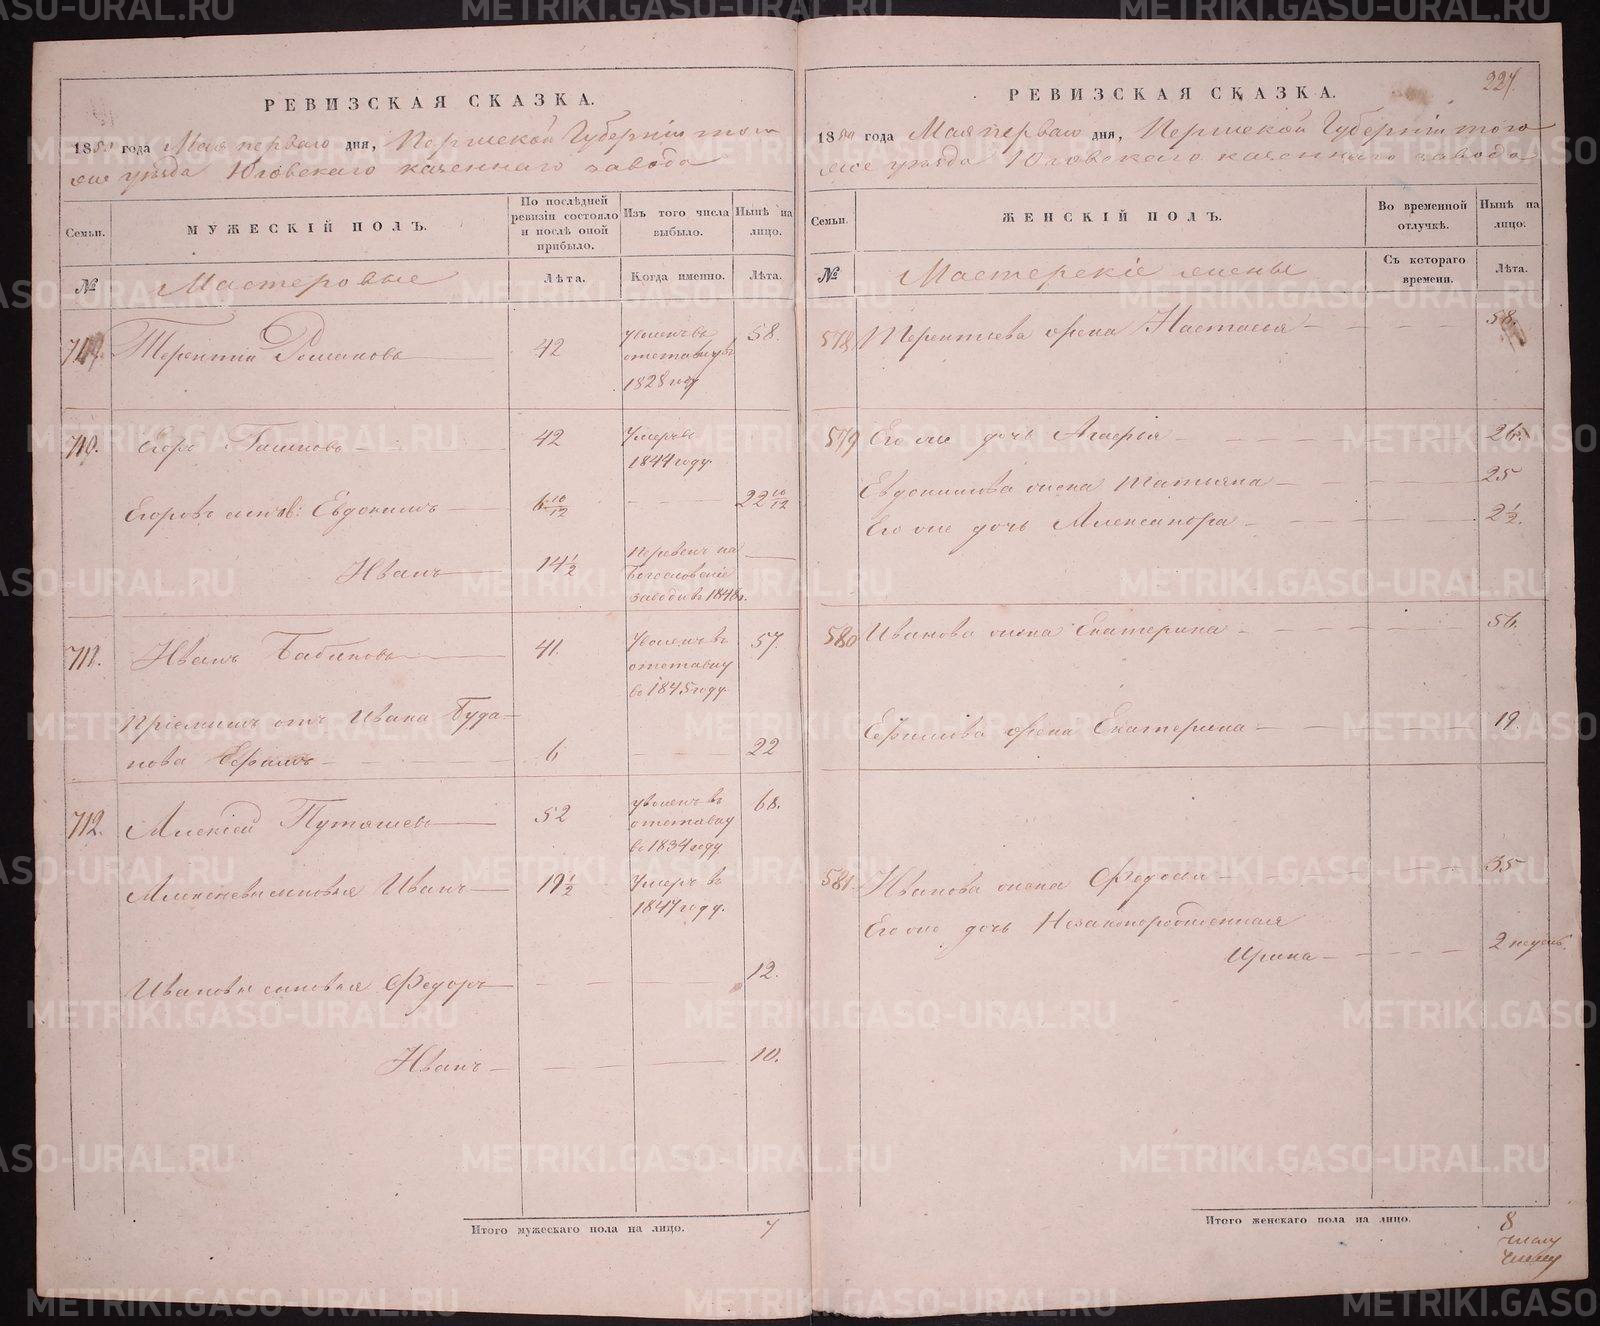 РЕВИЗСКАЯ СКАЗКА.
1850 года Мая перваго дня, Пермской Губернiи того
же уѣзда Юговскаго казеннаго завода
Семьи.
МУЖЕСКIЙ ПОЛЪ.
По послѣдней
ревизiи состояло
и послѣ оной
прибыло.
Изъ того числа
выбыло.
Нынѣ на
лицо.
№
Мастеровые
Лѣта.
Когда именно.
Лѣта.
Терентiй Романовъ
42
уволенъ въ
отставку въ
1828 году
58.
710.
Егоръ
42
Умеръ въ
1844 году.
Егоровъ сынъ Евдокимъ
6 10/12
22 10/12
Иванъ
14 1/2
Переведенъ на
Богословскiе
заводы въ 1848 г.
711.
Иванъ Бабиковъ
41.
Уволенъ въ
отставку
въ 1845 году.
57.
Прiемышъ отъ Ивана Буда-
нова Ефимъ
6
22
712.
Алексѣй Путошевъ
52
уволенъ въ
отставку
въ 1834 году
68.
Алексѣевы сыновья Иванъ
19 1/2
Умеръ въ
1847 году.
Ивановы сыновья Федоръ
12.
Иванъ
10.
Итого мужескаго пола на лицо.
7
227.
РЕВИЗСКАЯ СКАЗКА.
1850 года Мая перваго дня, Пермской Губернiи того
же уѣзда Юговскаго казеннаго завода
Семьи.
ЖЕНСКIЙ ПОЛЪ.
Во временной
отлучкѣ.
Нынѣ на
лицо.
№
Мастерскiе жены
Съ котораго
времени.
Лѣта.
578.
Терентьева жена Настасья
58.
579
Его же дочь Агафья
26.
Евдокимова жена Татьяна
25
Его же дочь Александра
2 1/2.
580
Иванова жена Екатерина
56.
Ефимова жена Екатерина
19.
581
Иванова жена Федосья
35
Его же дочь Незаконорожденная
Ирина
2 недѣль.
Итого женскаго пола на лицо.
8
METRIKI.GASO-URAL.RU